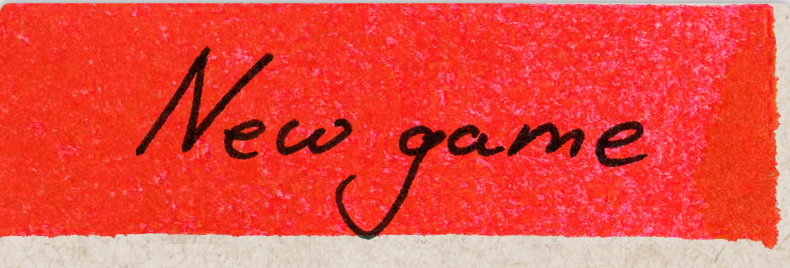 New game